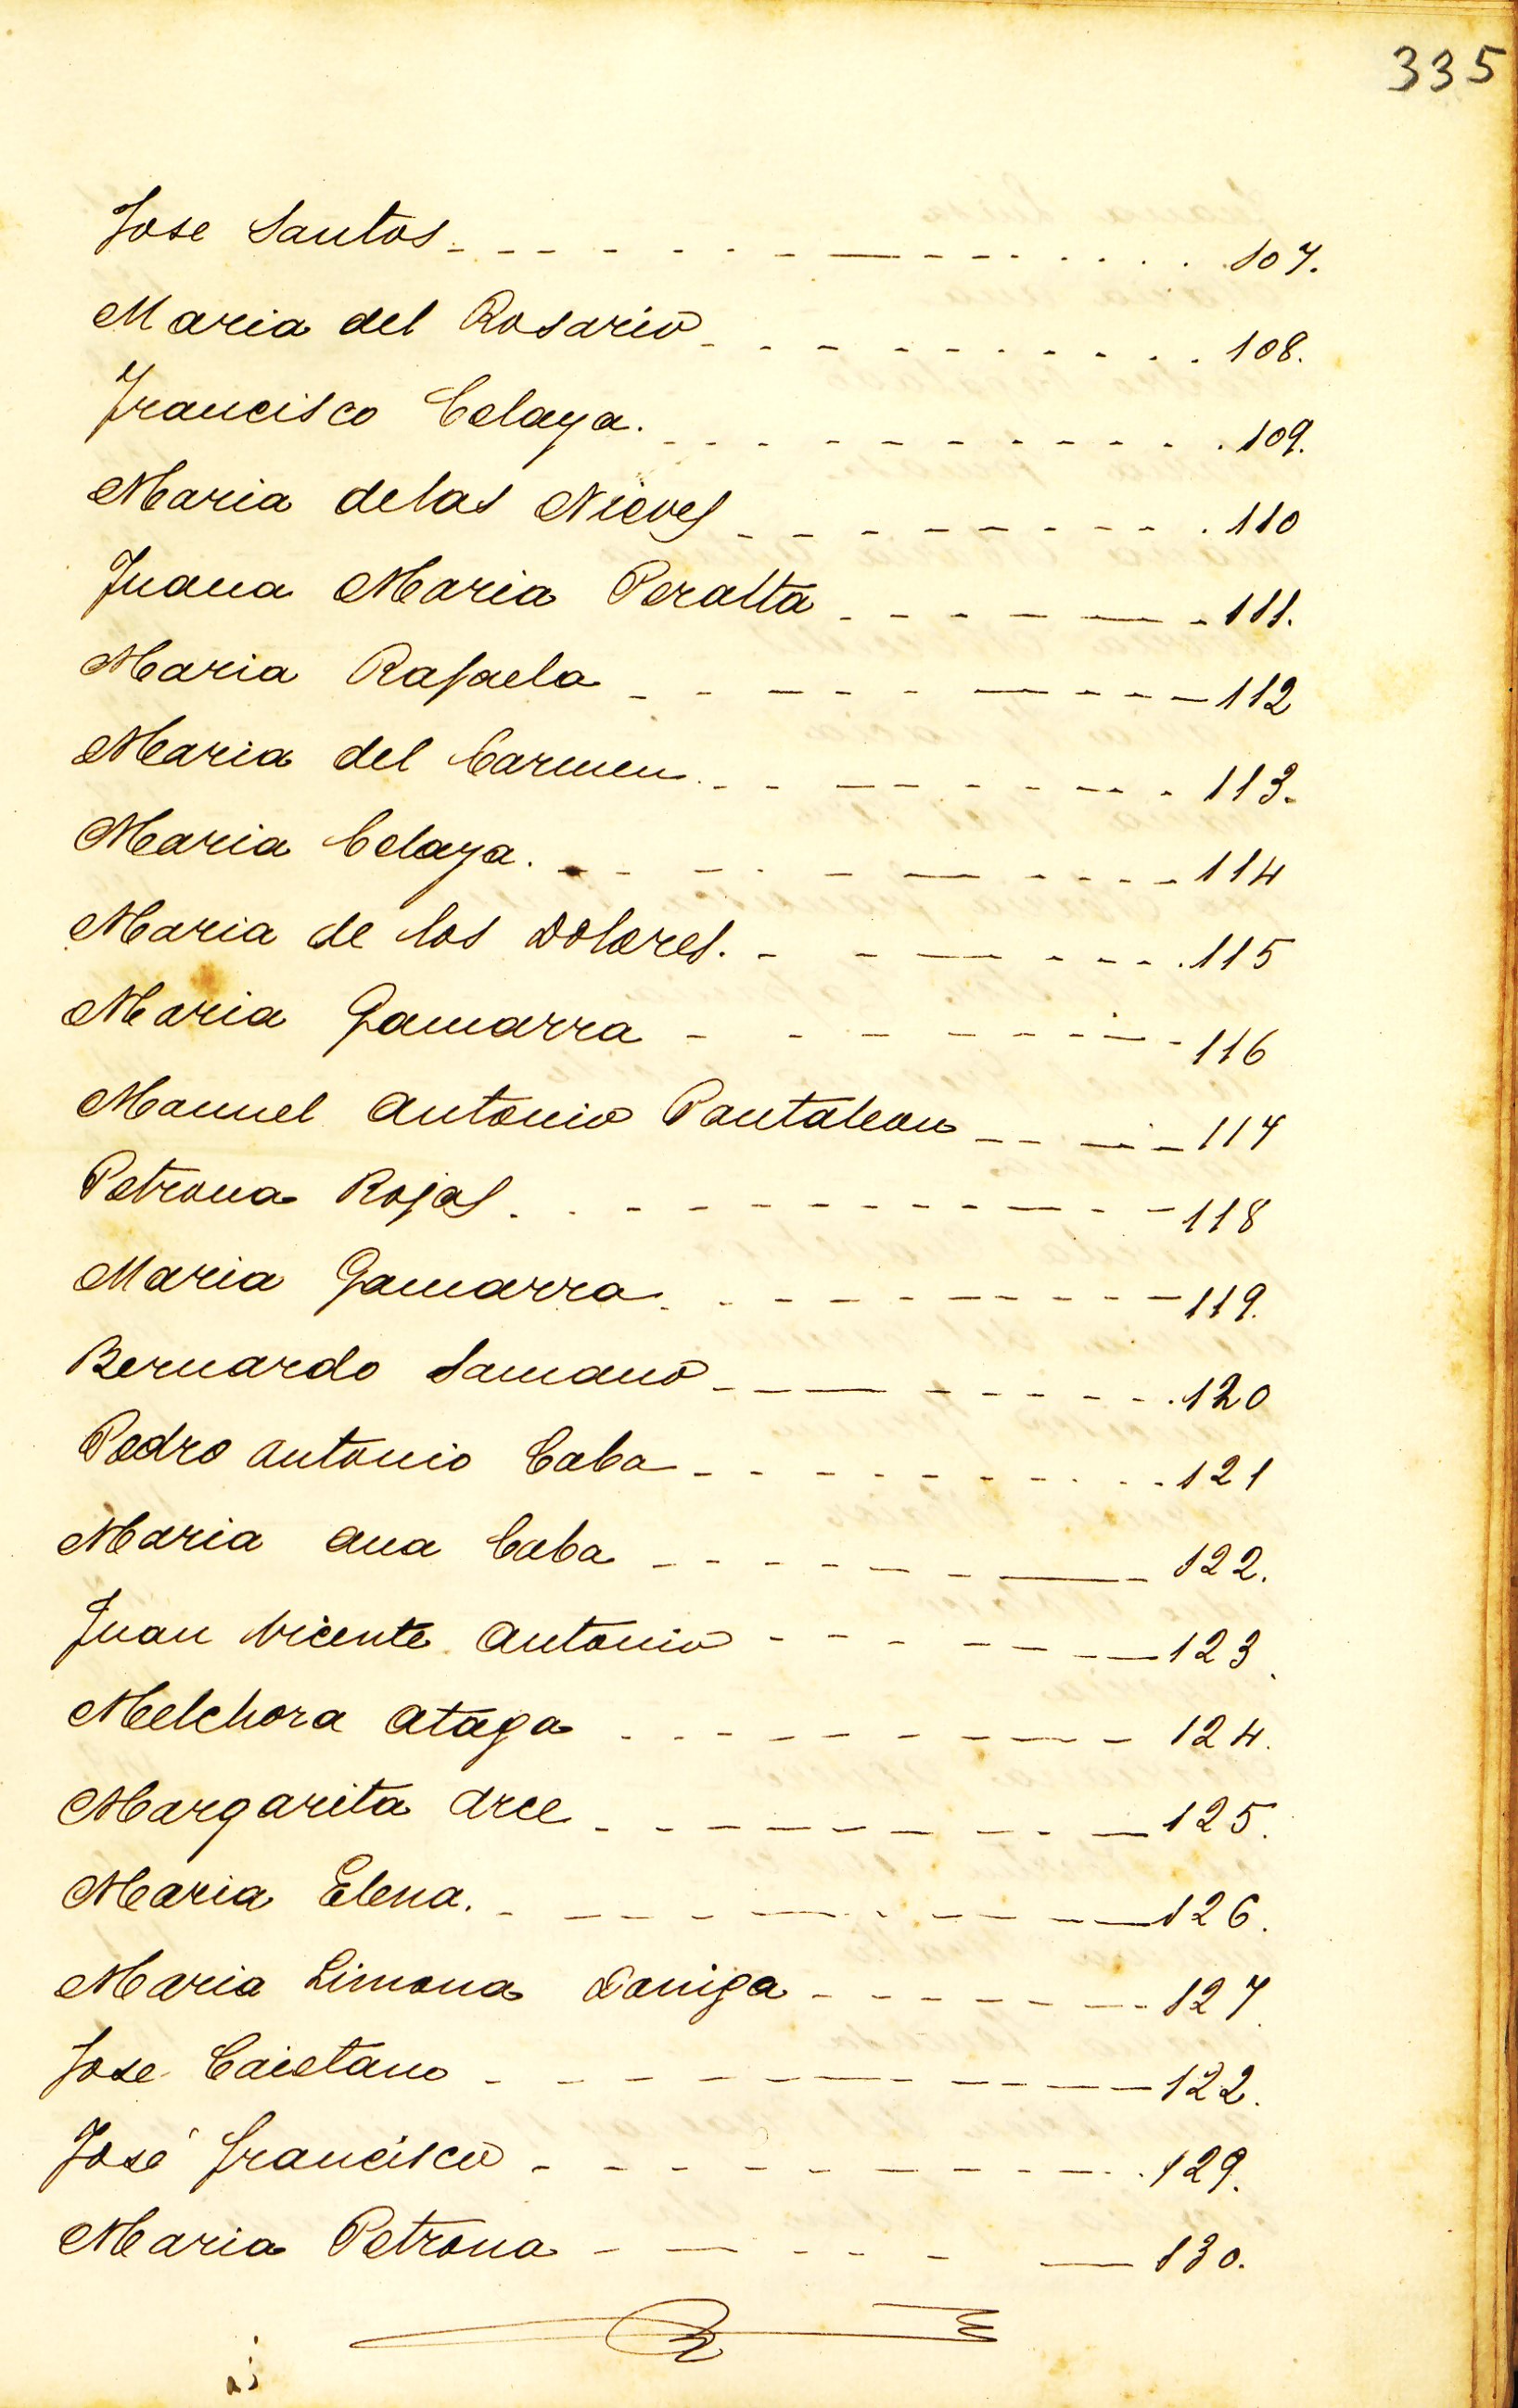 335
Jose Santos 107.
Maria del Rosario 108.
Francisco Celaya. 109.
Maria delas Nieves 110
Juana Maria Peralta 111.
Maria Rafaela 112
Maria del Carmen 113.
Maria Celaya. 114
Maria de los Dolores. 115
Maria Gamarra 116
Manuel Antonio Pantaleon 117
Petrona Rojas 118
Maria Gamarra 119.
Bernardo Samano 120
Pedro Antonio Caba 121
Maria Ana Caba 122.
Juan Vicente Antonio 123
Melchora Ataga 124.
Margarita Arce 125.
Maria Elena. 126.
Maria Limona 127
Jose Caietano 122.
José Francisco 129.
Maria Petrona 130.